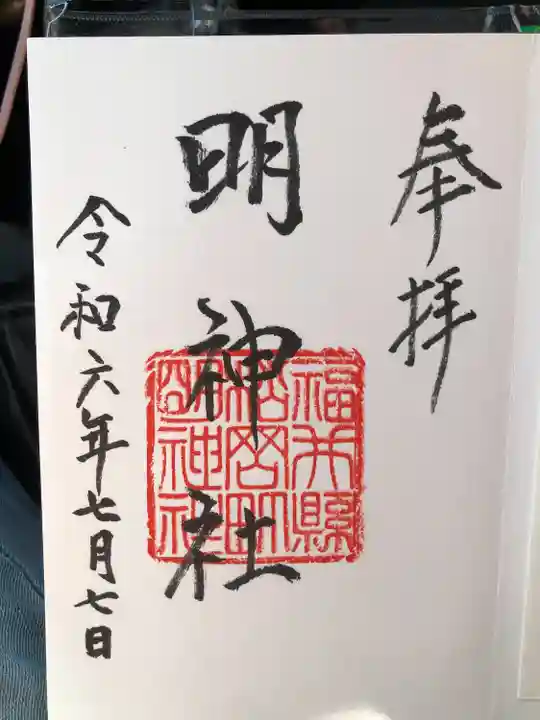 奉拝
明神社
福井縣
令和六年七月七日